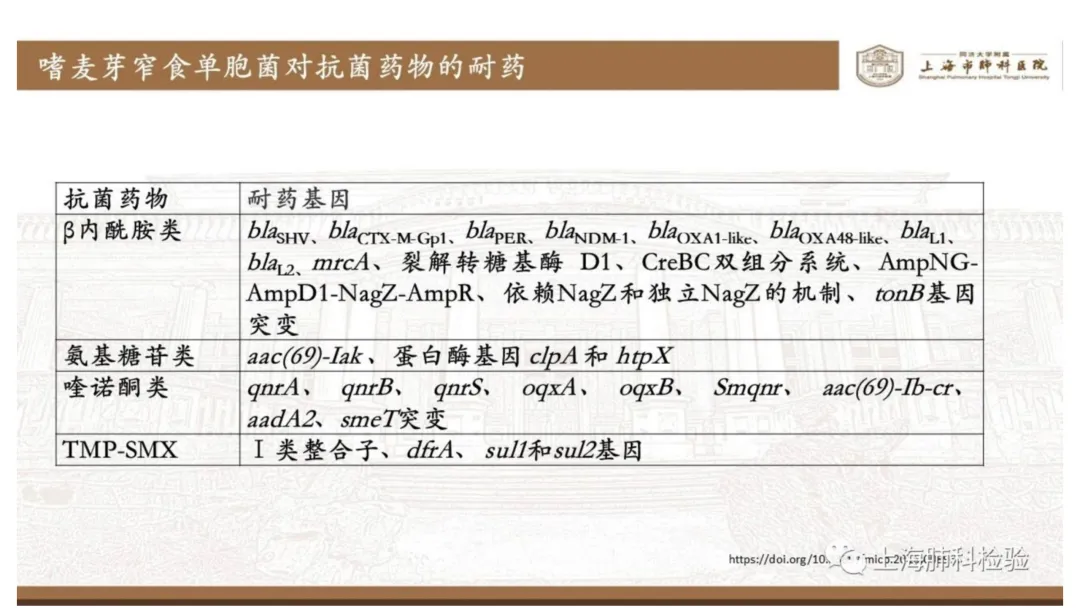 嗜麦芽窄食单胞菌对抗菌药物的耐药
同济大学附属
上海市肺科医院
Shanghai Pulmonary Hospital Tongji University
抗菌药物 耐药基因
β内酰胺类 blaSHV、blaCTX-M-Gp1、blaPER、blaNDM-1、blaOXA1-like、blaOXA48-like、blaL1、
blaL2、mrcA、裂解转糖基酶 D1、CreBC双组分系统、AmpNG-
AmpD1-NagZ-AmpR、依赖NagZ和独立NagZ的机制、tonB基因
突变
氨基糖苷类 aac(69)-Iak、蛋白酶基因 clpA 和 htpX
喹诺酮类 qnrA、 qnrB、 qnrS、 oqxA、 oqxB、 Smqnr、 aac(69)-Ib-cr、
aadA2、smeT突变
TMP-SMX Ⅰ类整合子、dfrA、 sul1和sul2基因
https://doi.org/10.
上海肺科检验